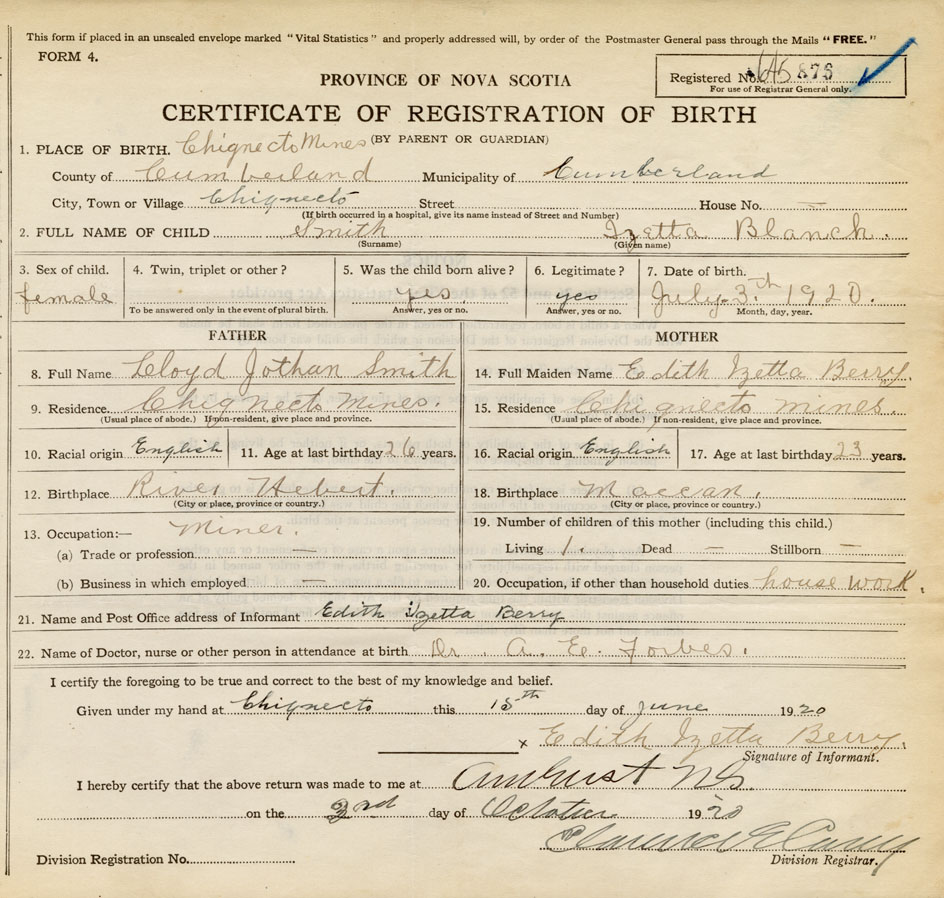 This form if placed in an unsealed envelope marked "Vital Statistics" and properly addressed will, by order of the Postmaster General pass through the Mails "FREE."
FORM 4.
PROVINCE OF NOVA SCOTIA
Registered No. 876
For use of Registrar General only.
CERTIFICATE OF REGISTRATION OF BIRTH
(BY PARENT OR GUARDIAN)
1. PLACE OF BIRTH. Chignecto Mines
County of Cumberland Municipality of Cumberland
City, Town or Village Chignecto Street House No. —
(If birth occurred in a hospital, give its name instead of Street and Number)
2. FULL NAME OF CHILD Smith Izetta Blanch.
(Surname) (Given name)
3. Sex of child. 4. Twin, triplet or other? 5. Was the child born alive? 6. Legitimate? 7. Date of birth.
female yes. yes July 3th 1920.
To be answered only in the event of plural birth. Answer, yes or no. Answer, yes or no. Month, day, year.
FATHER MOTHER
8. Full Name Lloyd Jothan Smith 14. Full Maiden Name Edith Izetta Berry.
9. Residence. Chignecto Mines. 15. Residence Chignecto mines.
(Usual place of abode.) If non-resident, give place and province. (Usual place of abode.) If non-resident, give place and province.
10. Racial origin English 11. Age at last birthday 26 years. 16. Racial origin English 17. Age at last birthday 23 years.
12. Birthplace River Hebert. 18. Birthplace Maccan.
(City or place, province or country.) (City or place, province or country.)
13. Occupation:— Miner. 19. Number of children of this mother (including this child.)
(a) Trade or profession — Living 1. Dead — Stillborn —
(b) Business in which employed — 20. Occupation, if other than household duties house work.
21. Name and Post Office address of Informant Edith Izetta Berry
22. Name of Doctor, nurse or other person in attendance at birth Dr. A. E. Forbes.
I certify the foregoing to be true and correct to the best of my knowledge and belief.
Given under my hand at Chignecto this 15th day of june 1920
x Edith Izetta Berry.
Signature of Informant.
I hereby certify that the above return was made to me at Amherst NS.
on the 2nd day of October 1920
Division Registration No. Division Registrar.